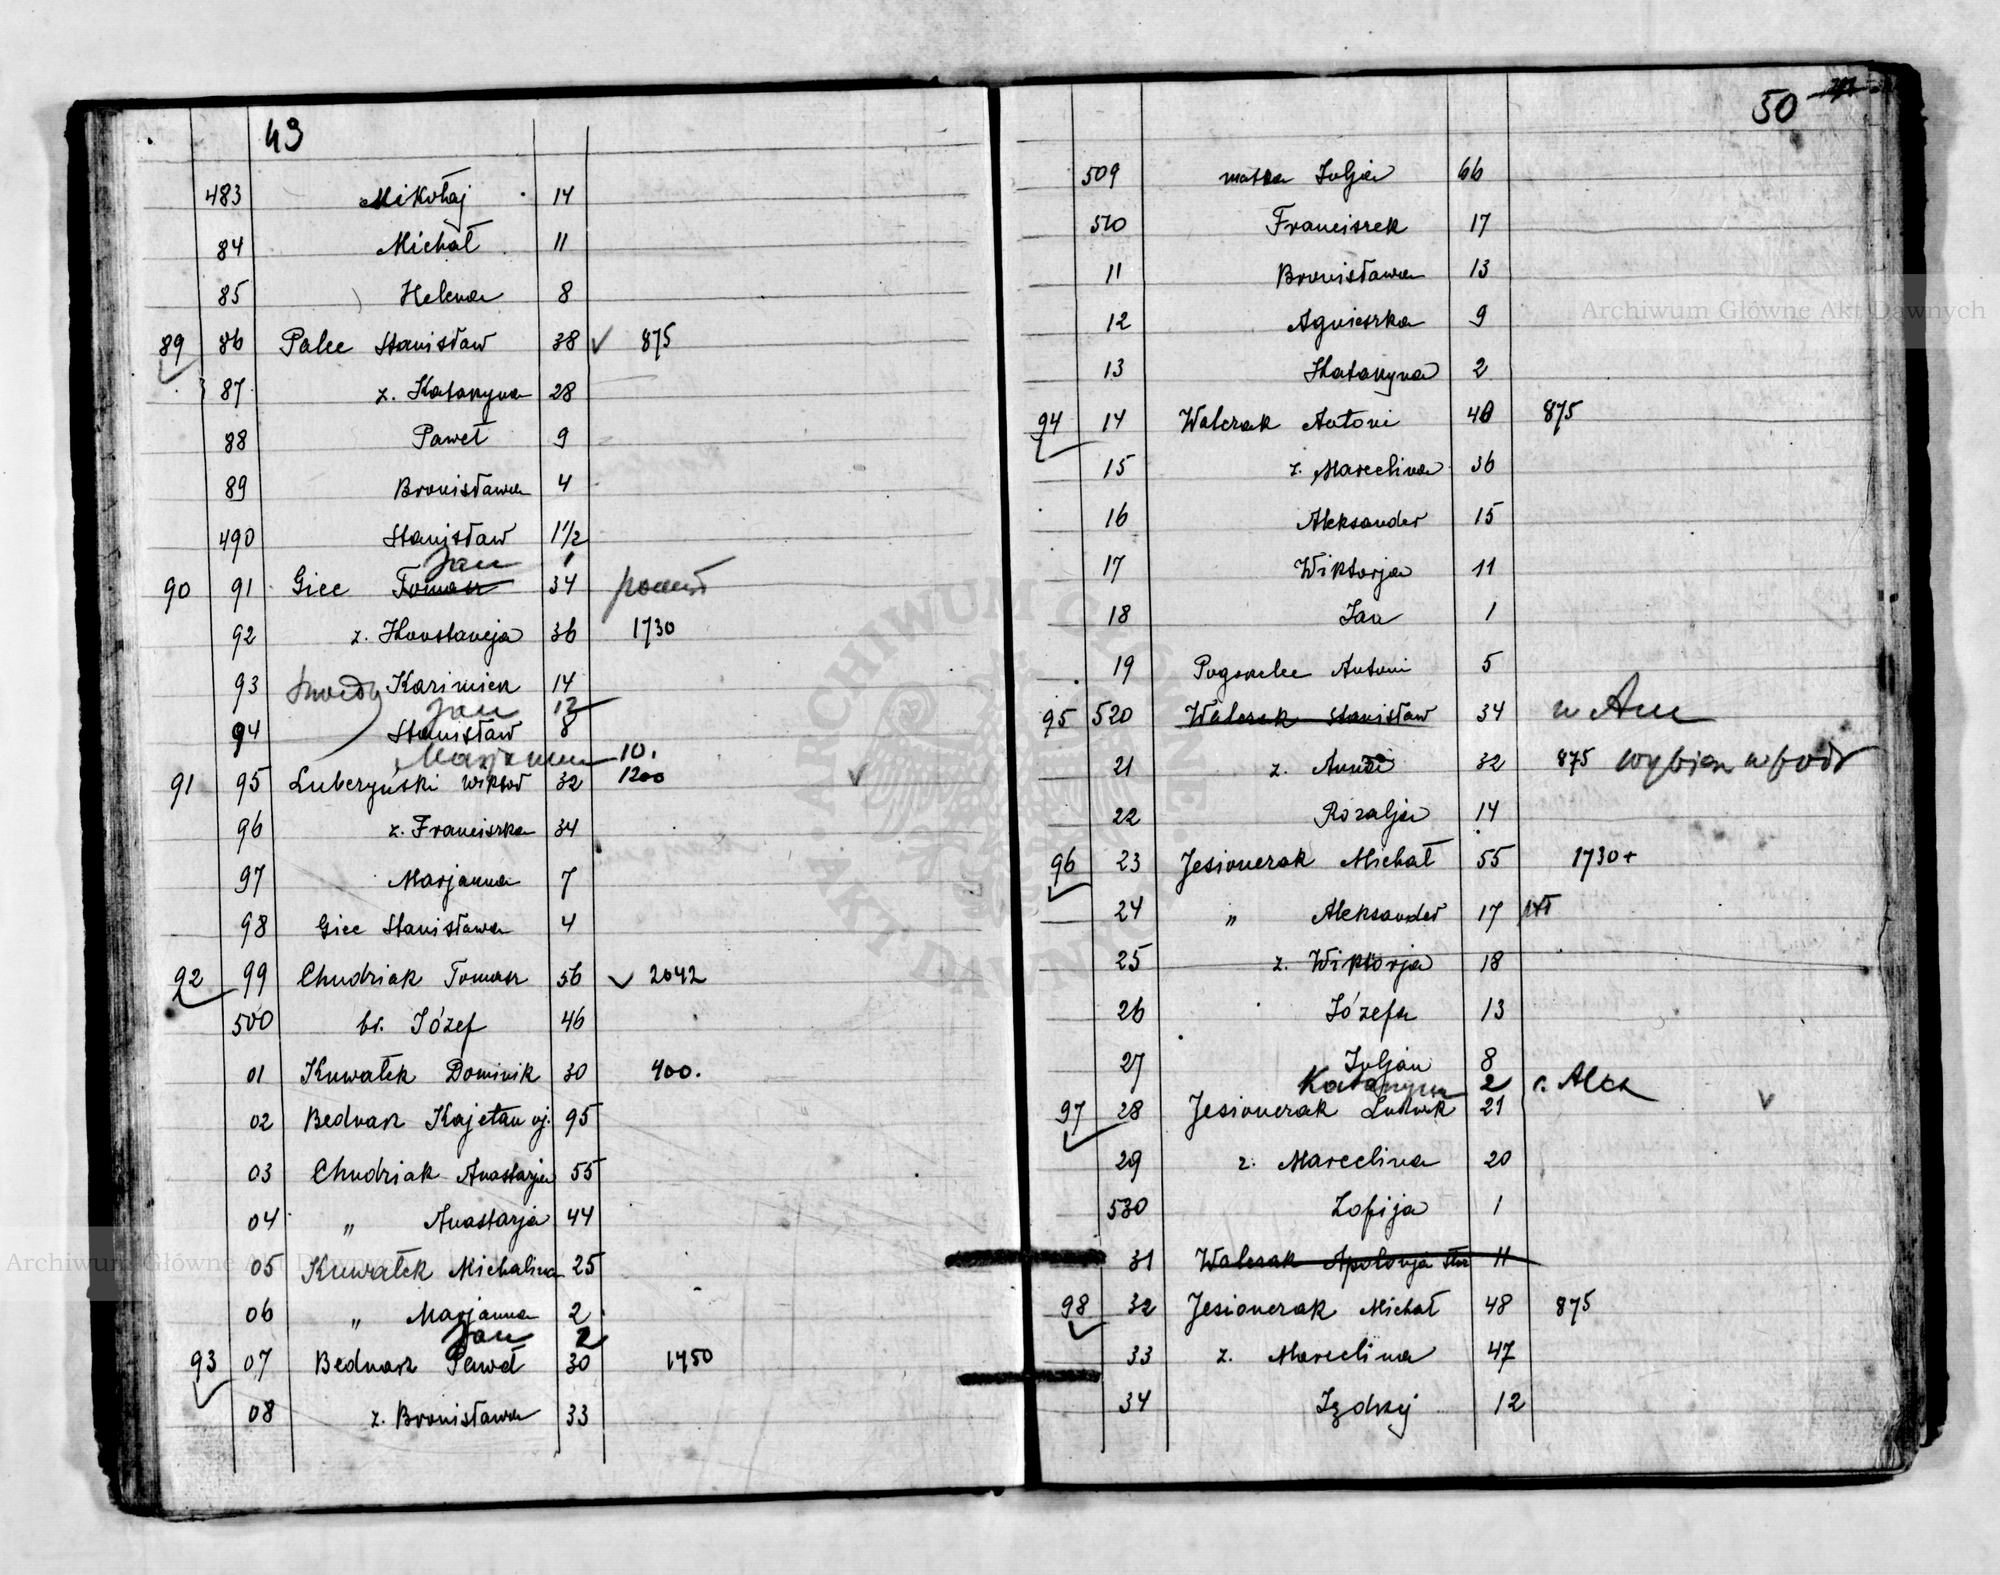 49
483 Mikołaj 14
84 Michał 11
85 Helena 8
89 86 Palec Stanisław 38 ✓ 875
87 ż. Katarzyna 28
88 Paweł 9
89 Bronisława 4
490 Stanisław 1 1/2
Jan 1
90 91 Giec Tomasz 34
92 ż. Konstancja 36 1730
93 Kazimierz 14
Jan 12
94 Stanisław 8
Marjanna 10.
91 95 Luberzyński Wiktor 32 1200
96 ż. Franciszka 34
97 Marjanna 7
98 Giec Stanisława 4
92 99 Chudziak Tomasz 56 ✓ 2042
500 br. Józef 46
01 Kuwałek Dominik 30 400.
02 Bednarz Kajetan oj. 95
03 Chudziak Anastazja 55
04 " Anastazja 44
05 Kuwałek Michalina 25
06 " Marjanna 2
Jan 2
93 07 Bednarz Paweł 30 1450
08 ż. Bronisława 33
50
509 matka Julja 66
510 Franciszek 17
11 Bronisława 13
12 Agnieszka 9
13 Katarzyna 2
94 14 Walczak Antoni 40 875
15 ż. Marcelina 36
16 Aleksander 15
17 Wiktorja 11
18 Jan 1
19 Pogorzelec Antoni 5
95 520 Walczak Stanisław 34 w Am
21 ż. Anna 32 875
22 Rozalja 14
96 23 Jesionczak Michał 55 1730+
24 " Aleksander 17
25 ż. Wiktorja 18
26 Józefa 13
27 Juljan 8
Katarzyna 2 c. Alek
97 28 Jesionczak Ludwik 21
29 ż. Marcelina 20
530 Zofija 1
31 Walczak Apolonja 11
98 32 Jesionczak Michał 48 875
33 ż. Marcelina 47
34 Jędrzej 12
Archiwum Główne Akt Dawnych
Archiwum Główne Akt Dawnych
ARCHIWUM GŁÓWNE AKT DAWNYCH